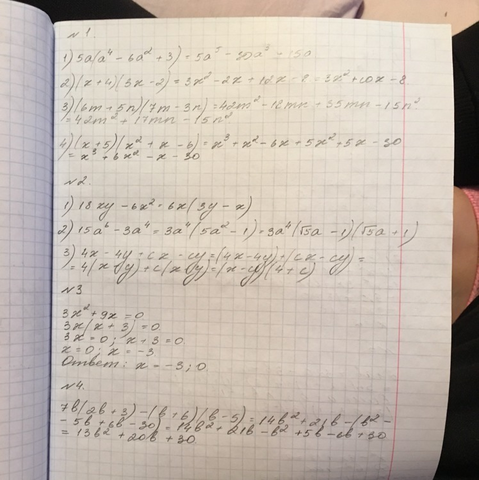 №1.
1) 5a(a⁴ - 6a² + 3) = 5a⁵ - 30a³ + 15a
2) (x+4)(3x-2) = 3x² - 2x + 12x - 8 = 3x² + 10x - 8
3) (6m+5n)(7m-3n) = 42m² - 18mn + 35mn - 15n²
= 42m² + 17mn - 15n²
4) (x+5)(x² + x - 6) = x³ + x² - 6x + 5x² + 5x - 30
= x³ + 6x² - x - 30
№2
1) 18xy - 6x² = 6x(3y - x)
2) 15a⁶ - 3a⁴ = 3a⁴(5a² - 1) = 3a⁴(√5a - 1)(√5a + 1)
3) 4x - 4y + cx - cy = (4x - 4y) + (cx - cy) =
= 4(x - y) + c(x - y) = (x - y)(4 + c)
№3
3x² + 9x = 0
3x(x + 3) = 0
3x = 0; x + 3 = 0
x = 0; x = -3
Ответ: x = -3; 0.
№4.
7b(2b+3) - (b+6)(b-5) = 14b² + 21b - (b² -
- 5b + 6b - 30) = 14b² + 21b - b² + 5b - 6b + 30
= 13b² + 20b + 30